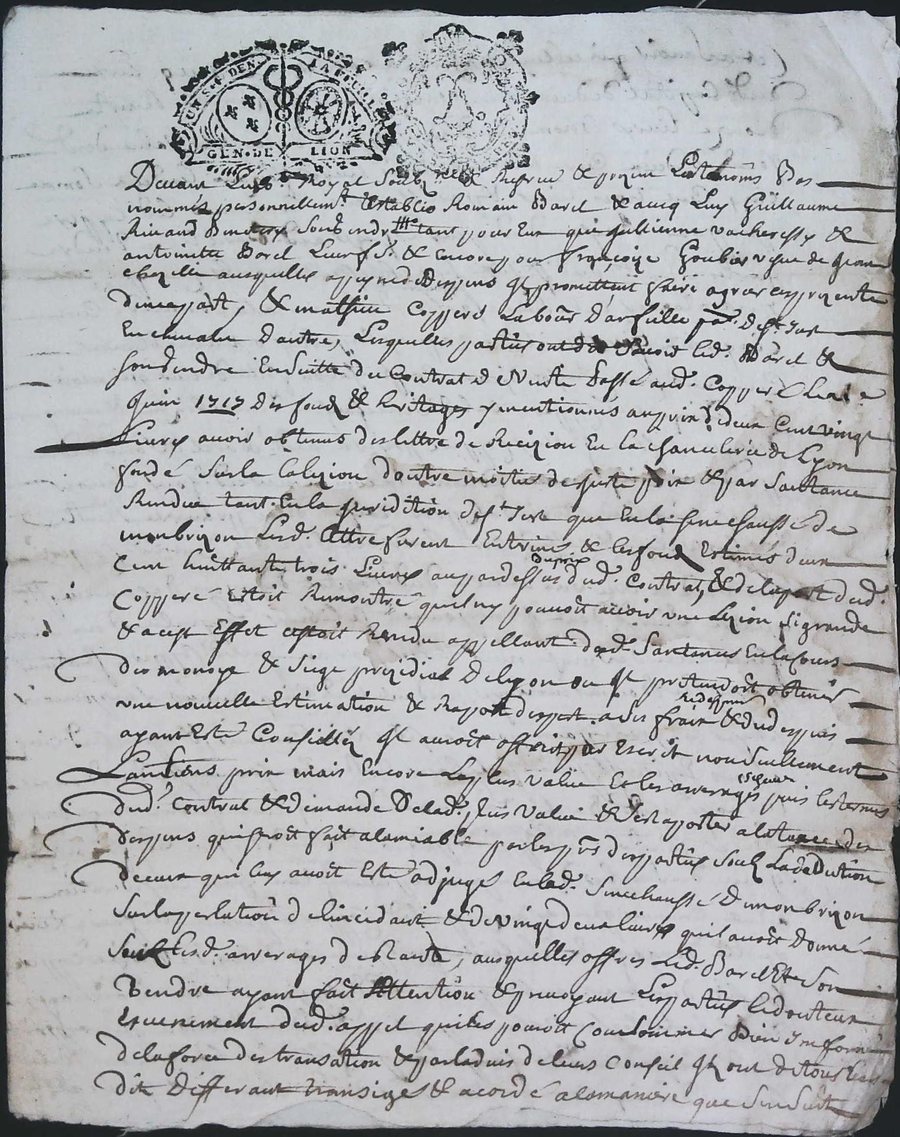 UN S. F. DEN. LA FEUILLE
GEN. DE LION
Devant Royal Soub. & present Les tesmoins Bas
nommes personnellemt. establis Romain Barel & avecq Luy Guillaume
Rinaud Son gendre tant pour Eux que gullienne vacheresse &
antoinette Barel Leurs f. & Encore pour francoize Goubier vesve de
ausquelles promettent faire agreer ces presente
d'une part, & mathieu Copperé Labour d'arfeille par. de St. Just
En chevalet d'autre, Lesquelles parties ont dit Led. Barel &
son gendre Ensuitte du Contrat de Vente passé aud. Copperé Le
Juin 1717 des fond & heritages y mentionnés au prix de deux Cent vingt
Livres avoir obtenus des lettre de Recizion En la chancelerie de Lyon
fondé Sur la lezion d'outre moitié de juste prix & par Santance
Rendue tant En la juridition de St. Just que En la senechaussé de
montbrizon Lesd. lettre furent Entriné & les fond Estimés deux
Cent huittante trois Livres au par dessus du prix dud. Contrat, & de la part dud.
Copperé Estoit Remontré qu'il ny pouvoit avoir une Lezion Si grande
& a cest Effet cestoit Rendu appellant desd. Santances En la Cours
des monoye & Siege prezidial de Lyon ou il pretendoit obtenir
une nouvelle Estimation & Raport d'expert a ses frais & du depuis
ayant Esté Conseillé il auroit offert par Escrit non Seullement
L'antiens prix mais Encore La plus value Et les arrerages puis
dud. Contrat & demande de lad. plus value & s'en raporter a la taxe des
despens qui seroit fait alamiable par les dites parties Soub La dedution
de ceux qui luy avoit Esté adjugé En lad. Senechaussé de monbrizon
Sur l'apelation de l'incidant & de vingt deux livres qu'il avoit donné
Sur Lesd. arrerages de Rante, ausquelles offres Led. Barel & Son
Gendre ayant fait Attention & prevoyant Les parties le douteux
Evenement dud. appel qui les pouroit Consommer Bien informé
de la force des transation & par l'advis de leurs Conseil ils ont de tous
dit differant transigé & acordé a la maniere que S'ensuit